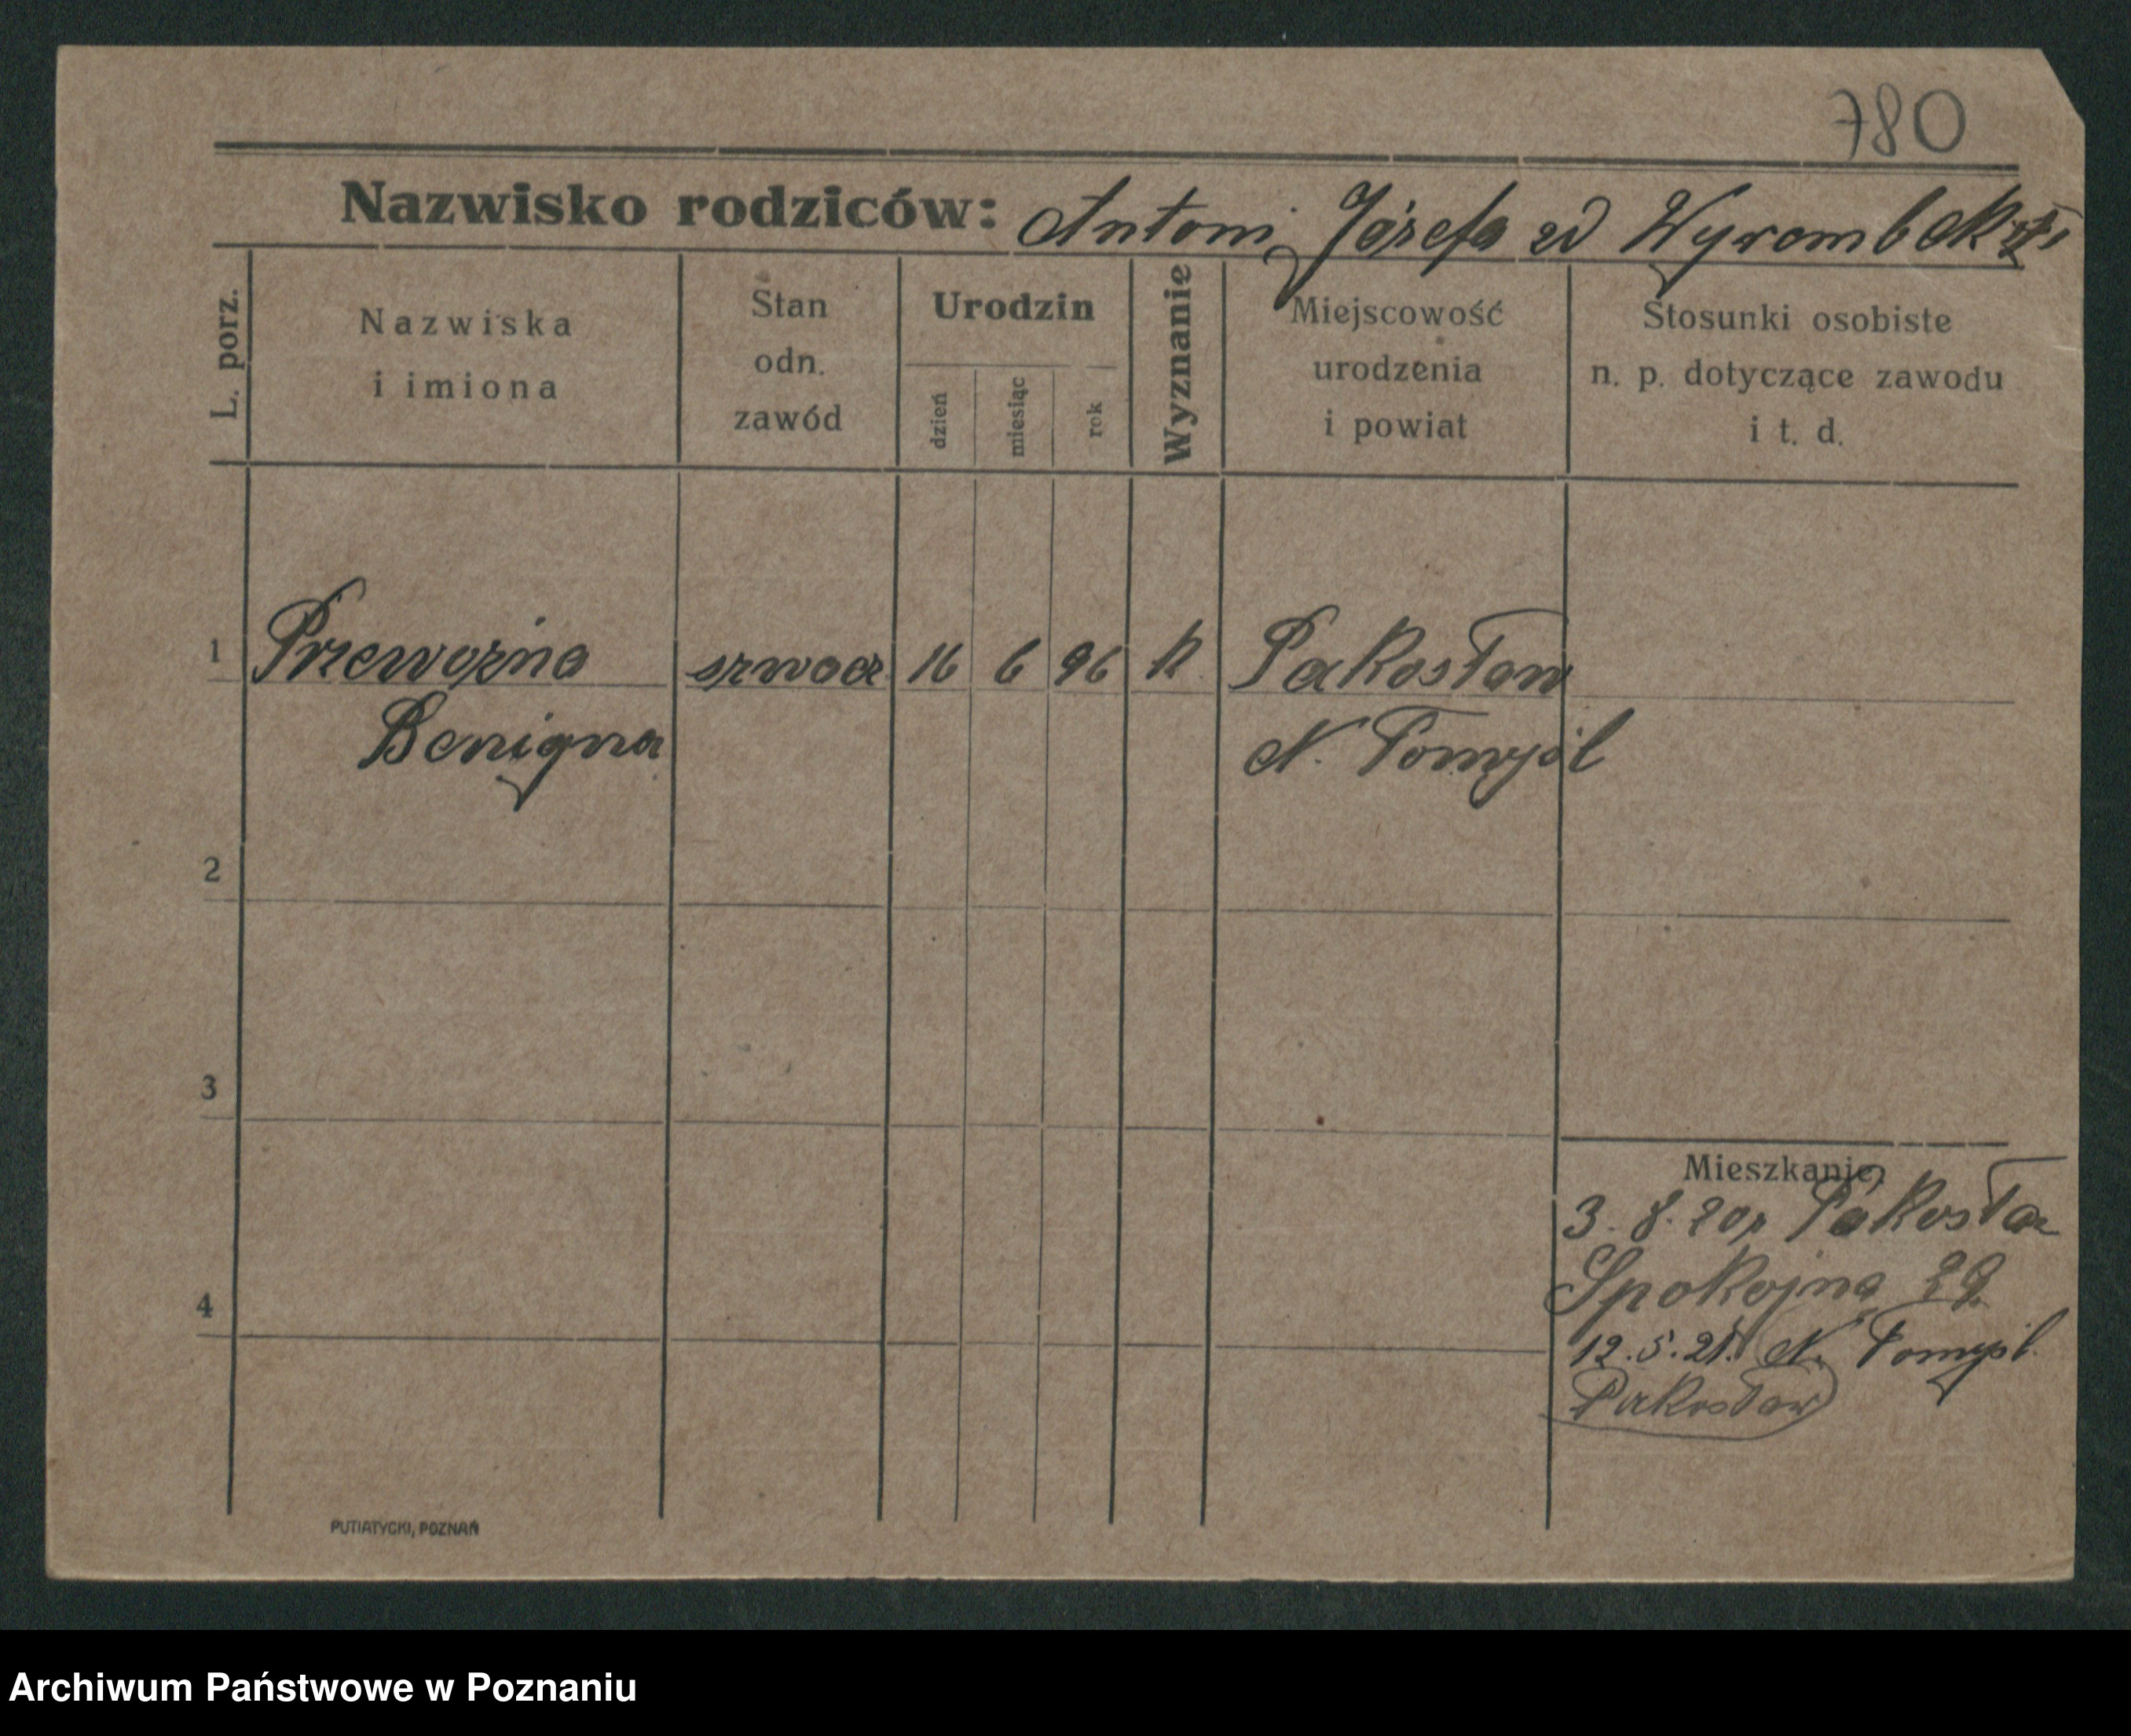 780
Nazwisko rodziców: Antoni Józefa zd Wyrombek
L. porz.
Nazwiska
i imiona
Stan
odn.
zawód
Urodzin
dzień
miesiąc
rok
Wyznanie
Miejscowość
urodzenia
i powiat
Stosunki osobiste
n. p. dotyczące zawodu
i t. d.
1 Przewoźna 16 6 96 k Pakosław
Benigna N. Tomyśl
2
3
4
Mieszkanie
3. 8. 20 Pakosław
Spokojna 29
12. 5. 21. N. Tomyśl
Pakosław
PUTIATYCKI, POZNAŃ
Archiwum Państwowe w Poznaniu